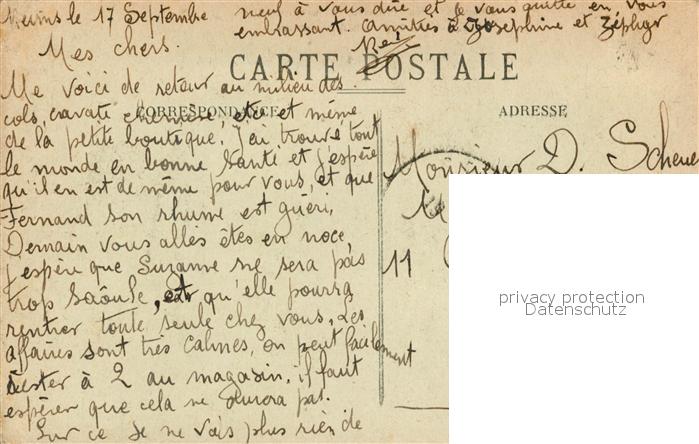 Reims le 17 Septembre
Mes chers.
Me voici de retour au milieu des
cols, cravate chemise etc et même
de la petite boutique. J'ai trouvé tout
le monde en bonne santé et j'espère
qu'il en est de même pour vous, et que
Fernand son rhume est guéri,
Demain vous allés êtes en noce,
j'espère que Suzanne ne sera pas
trop saôule, et qu'elle pourra
rentrer toute seule chez vous, Les
affaires sont très calmes, on peut facilement
rester à 2 au magasin, il faut
espérer que cela ne durera pas.
Sur ce je ne vois plus rien de
neuf à vous dire et je vous quitte en vous
embrassant. Amitiés à Josephine et Zéphyr
CARTE POSTALE
CORRESPONDANCE
ADRESSE
Monsieur D.
11
privacy protection
Datenschutz